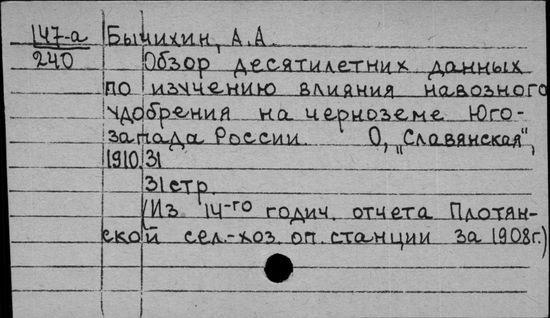 147-а Бычихин, А.А.
240 Обзор десятилетних данных
по изучению влияния навозного
удобрения на черноземе Юго-
запада России. О, „Славянская",
1910. 31
31 стр.
(Из 14-го годич. отчета Плотян-
ской сел.-хоз. оп. станции за 1908г.)